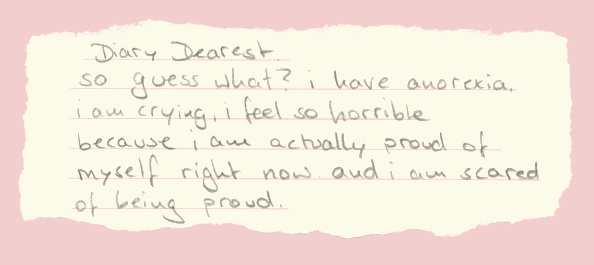 Diary Dearest.
so guess what? i have anorexia.
i am crying, i feel so horrible
because i am actually proud of
myself right now. and i am scared
of being proud.